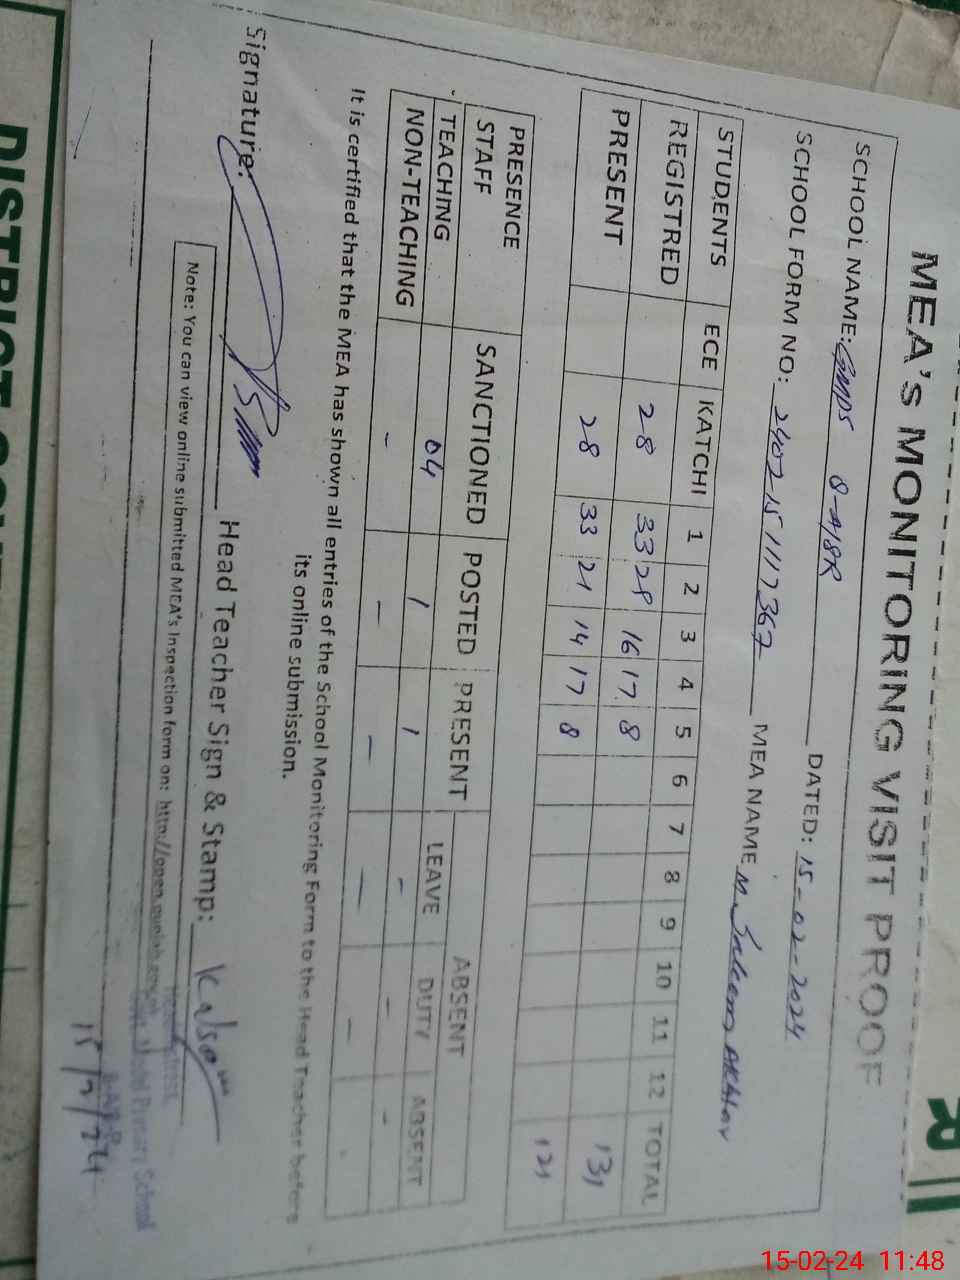 MEA'S MONITORING VISIT PROOF
SCHOOL NAME: GMPS 8-A18R DATED: 15-02-2024
SCHOOL FORM NO: 240215111367 MEA NAME M. Saleem Akhtar
STUDENTS ECE KATCHI 1 2 3 4 5 6 7 8 9 10 11 12 TOTAL
REGISTRED 28 33 28 16 17 8 131
PRESENT 28 33 21 14 17 8 121
PRESENCE SANCTIONED POSTED PRESENT ABSENT
STAFF LEAVE DUTY ABSENT
TEACHING 04 1 1 - - -
NON-TEACHING - - - - - -
It is certified that the MEA has shown all entries of the School Monitoring Form to the Head Teacher before
its online submission.
Signature: Head Teacher Sign & Stamp:
Note: You can view online submitted MEA's Inspection form on: http://open.punjab.gov.pk
Model Primary School
15/2/24
DISTRICT
R
15-02-24 11:48